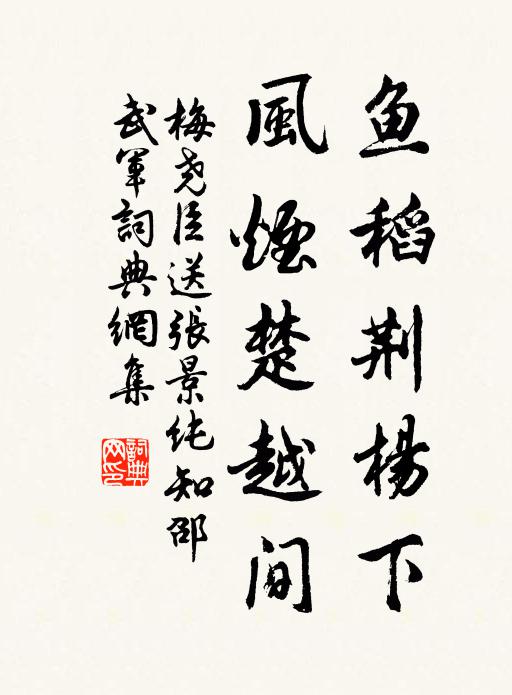 鱼稻荆楊下
風煙楚越間
梅尧臣送張景纯知邵
武軍詞典網集
詞典
网印